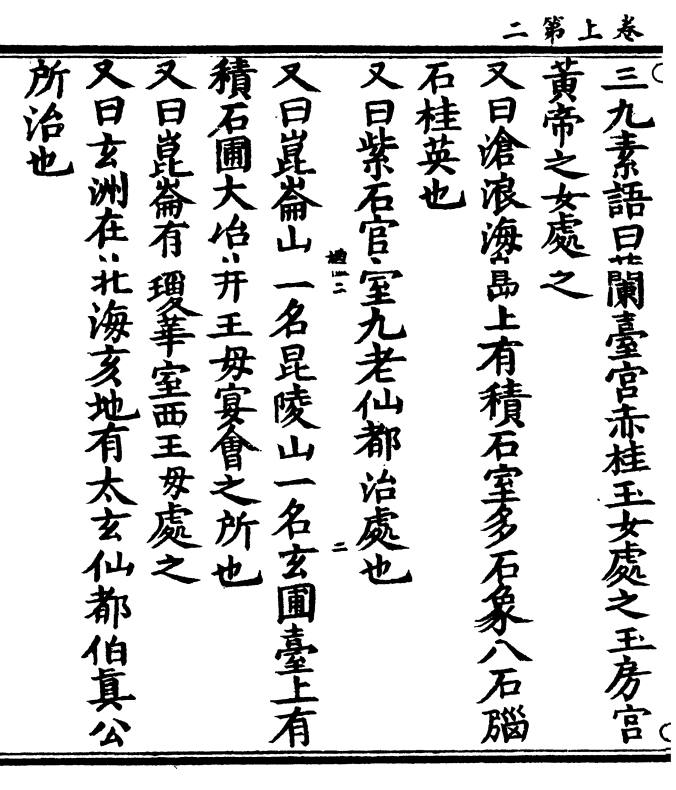 卷上第二
三九素語曰蘭臺宮赤桂玉女處之玉房宮
黃帝之女處之
又曰滄浪海島上有積石室多石象八石腦
石桂英也
又曰紫石官室九老仙都治處也
二
又曰崑崙山一名昆陵山一名玄圃臺上有
積石圃大冶井王母宴會之所也
又曰崑崙有瓊華室西王母處之
又曰玄洲在北海亥地有太玄仙都伯真公
所治也